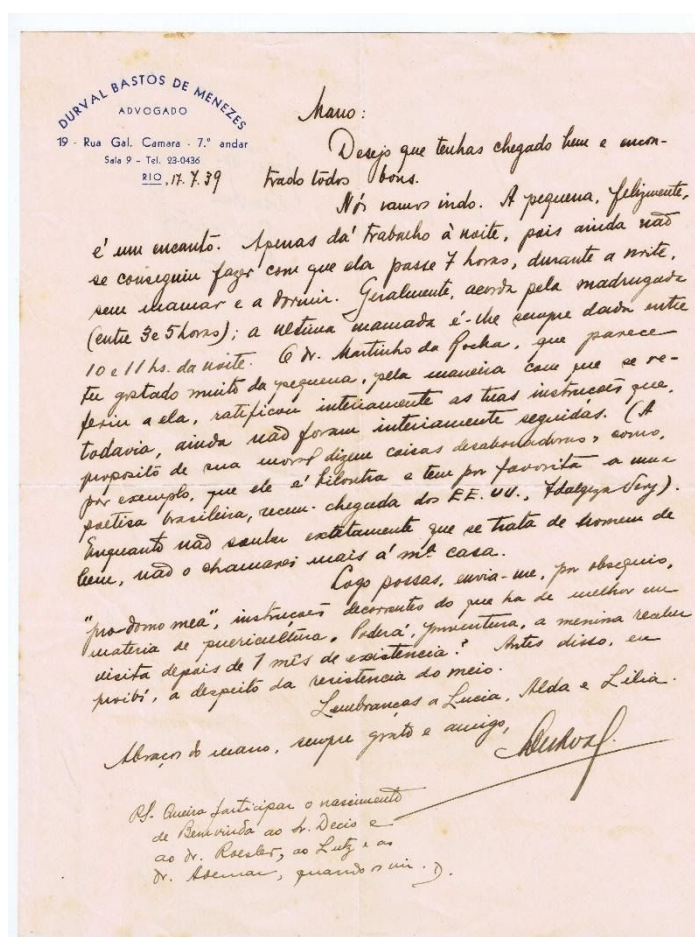 DURVAL BASTOS DE MENEZES
ADVOGADO
19 - Rua Gal. Camara - 7.º andar
Sala 9 - Tel. 23-0436
RIO, 17.7.39
Mano:
Desejo que tenhas chegado bem e encon-
trado todos bons.
Nós vamos indo. A pequena, felizmente,
é um encanto. Apenas dá trabalho à noite, pois ainda não
se conseguiu fazer com que ela passe 7 horas, durante a noite,
sem mamar e a dormir. Geralmente, acorda pela madrugada
(entre 3 e 5 horas); a ultima mamada é-lhe sempre dada entre
10 e 11 hs. da noite. O dr. Martinho da Rocha, que parece
ter gostado muito da pequena, pela maneira com que se re-
feriu a ela, ratificou inteiramente as tuas instruções que,
todavia, ainda não foram inteiramente seguidas. (A
proposito de sua moral dizem coisas desabonadoras, como,
por exemplo, que ele é pilontra e tem por favorita a uma
poetisa brasileira, recem-chegada dos EE. UU., Adalgiza Nery).
Enquanto não souber exatamente que se trata de homem de
bem, não o chamarei mais á mª casa.
Logo possas, envia-me, por obsequio,
"pro-domo mea", instruções decorrentes do que ha de melhor em
materia de puericultura. Poderá, porventura, a menina receber
visita depois de 1 mês de existencia? Antes disso, eu
proibí, a despeito da resistencia do meio.
Lembranças a Lucia, Alda e Lilia.
Abraços do mano, sempre grato e amigo,
Durval.
PS. Queira participar o nascimento
de Benvinda ao Sr. Decio e
ao dr. Roesler, ao Lutz e ao
dr. Ademar, quando os vir. D.